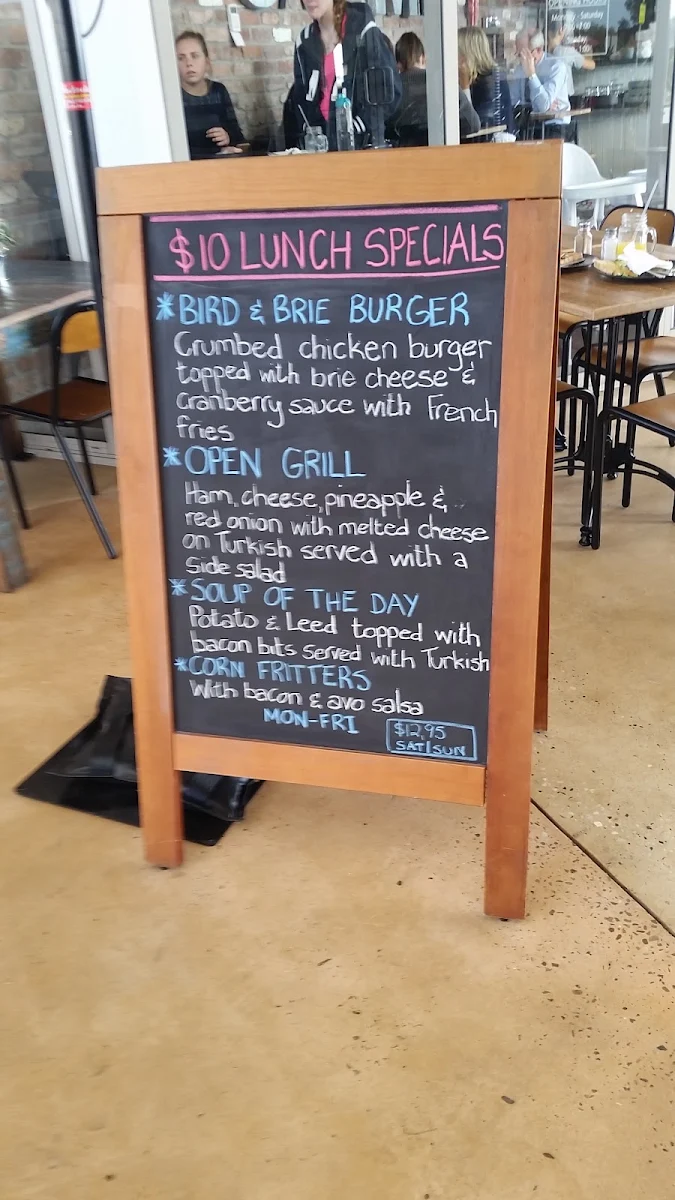 $10 LUNCH SPECIALS
* BIRD & BRIE BURGER
Crumbed chicken burger
topped with brie cheese &
cranberry sauce with French
fries
* OPEN GRILL
Ham, cheese, pineapple &
red onion with melted cheese
on Turkish served with a
side salad
* SOUP OF THE DAY
Potato & Leed topped with
bacon bits served with Turkish
* CORN FRITTERS
With bacon & avo salsa
MON-FRI
$12.95
SAT/SUN
OPENING HOURS
Monday - Saturday